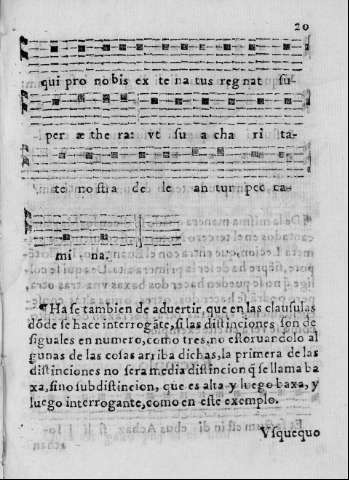 20
qui pro nobis ex te na tus reg nat su-
per æ the ra: vt su a cha ri ta-
te nostra de le an tur pec ca-
mi na.
¶ Ha se tambien de aduertir, que en las clausulas
dōde se hace interrogāte, si las distinciones son de
siguales en numero, como tres, no estoruandolo al
gunas de las cosas arriba dichas, la primera de las
distinciones no sera media distincion q̄ se llama ba
xa, sino subdistincion, que es alta y luego baxa, y
luego interrogante, como en este exemplo.
Vsquequo